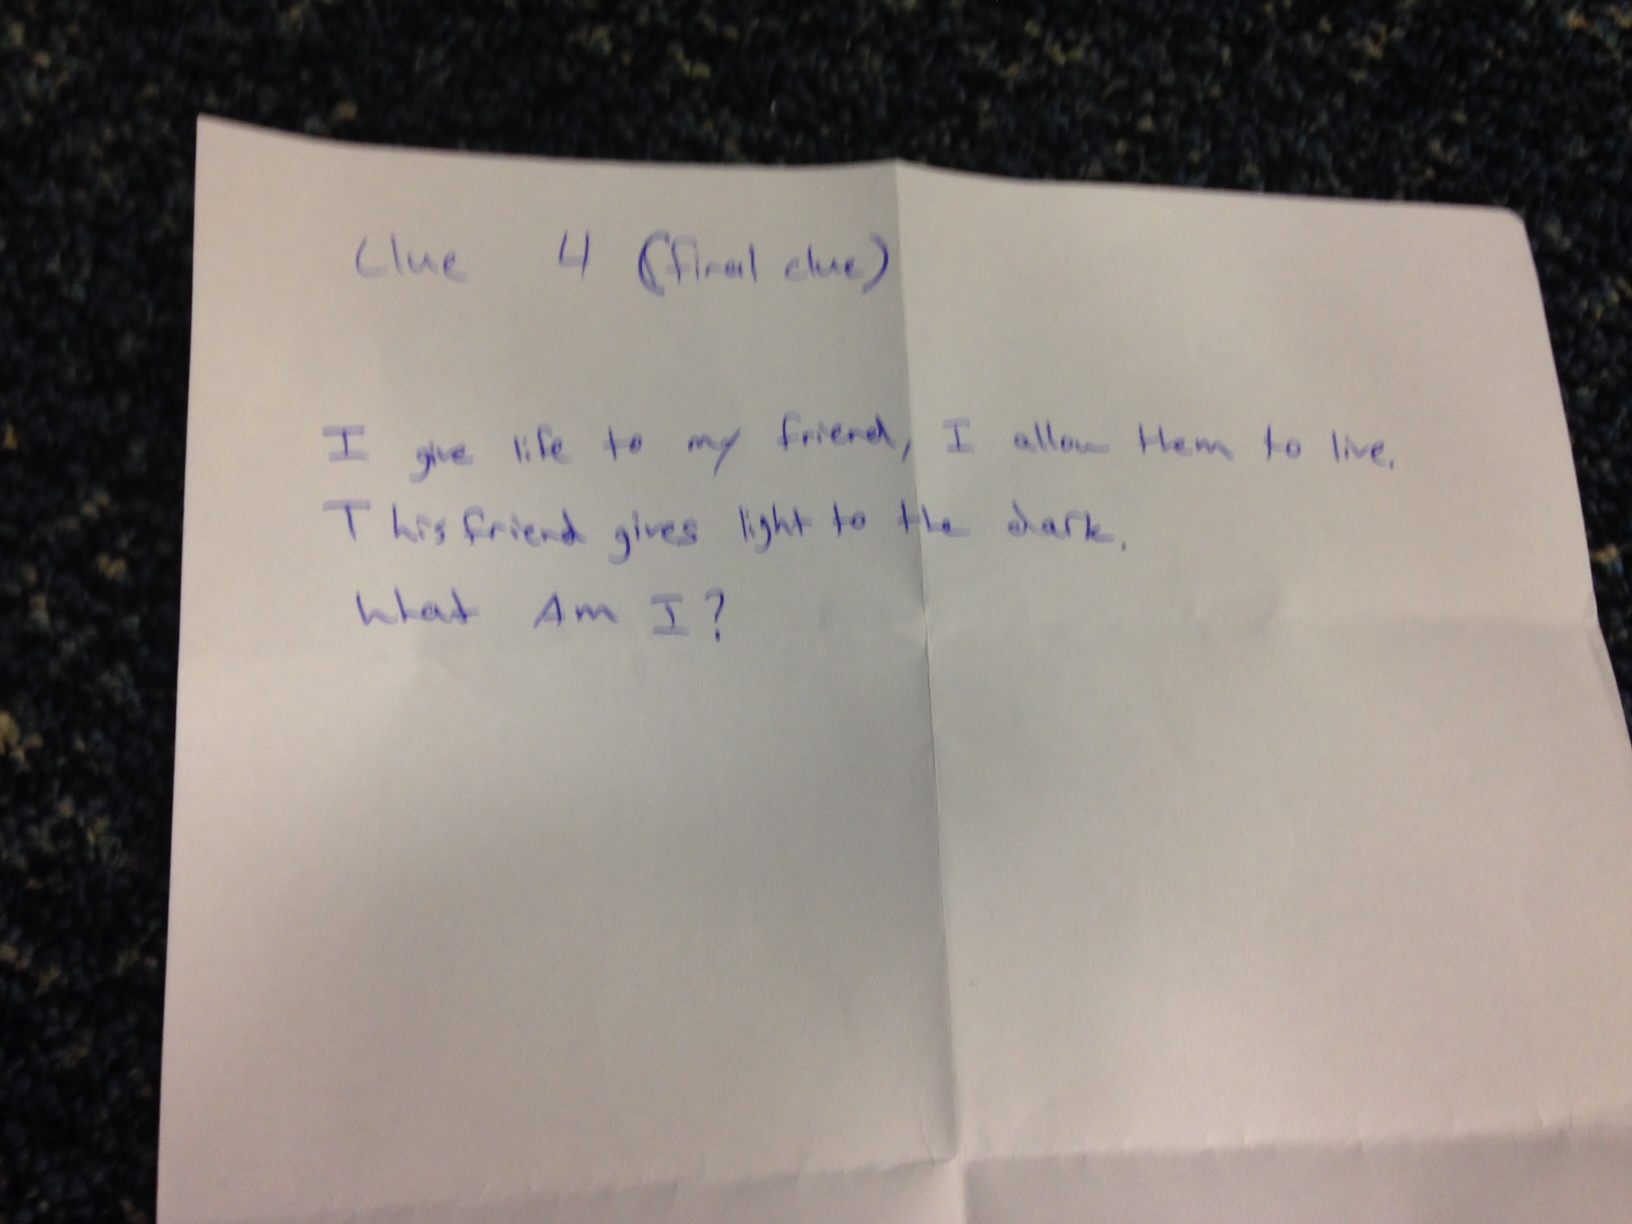 Clue 4 (final clue)
I give life to my friend, I allow them to live.
This friend gives light to the dark.
What Am I?